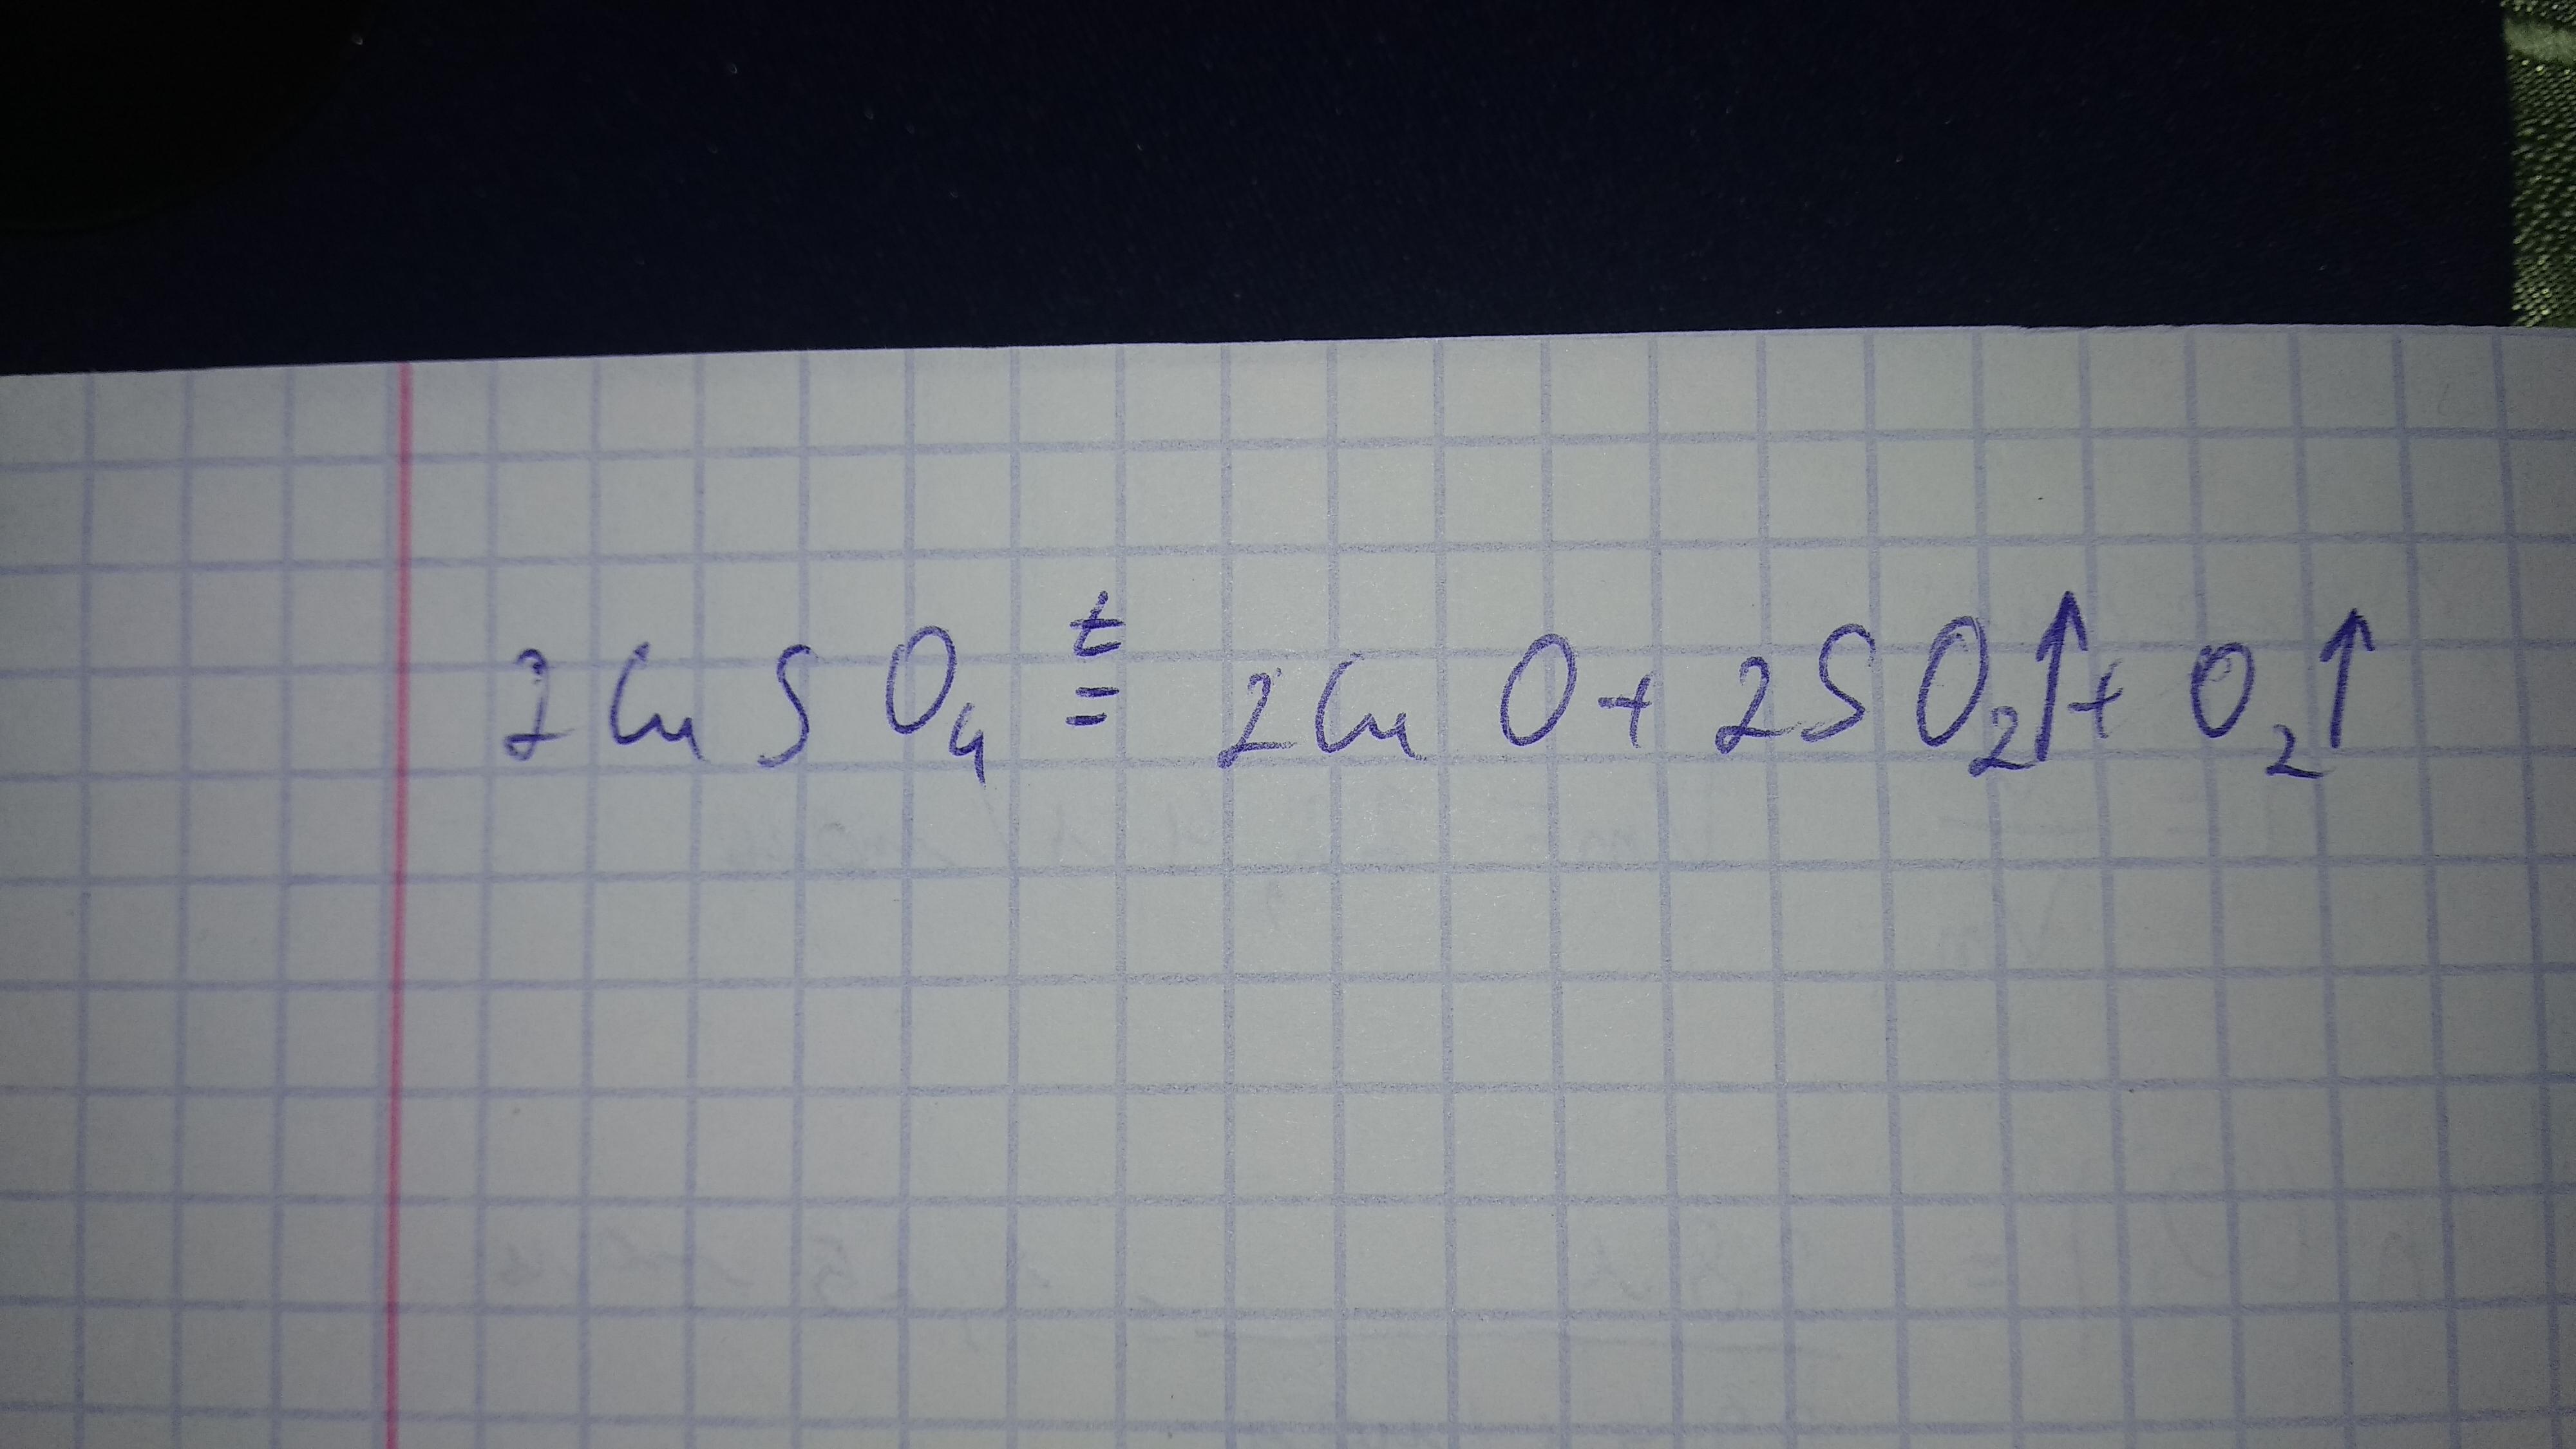 2CuSO₄ =ᵗ 2CuO + 2SO₂↑ + O₂↑